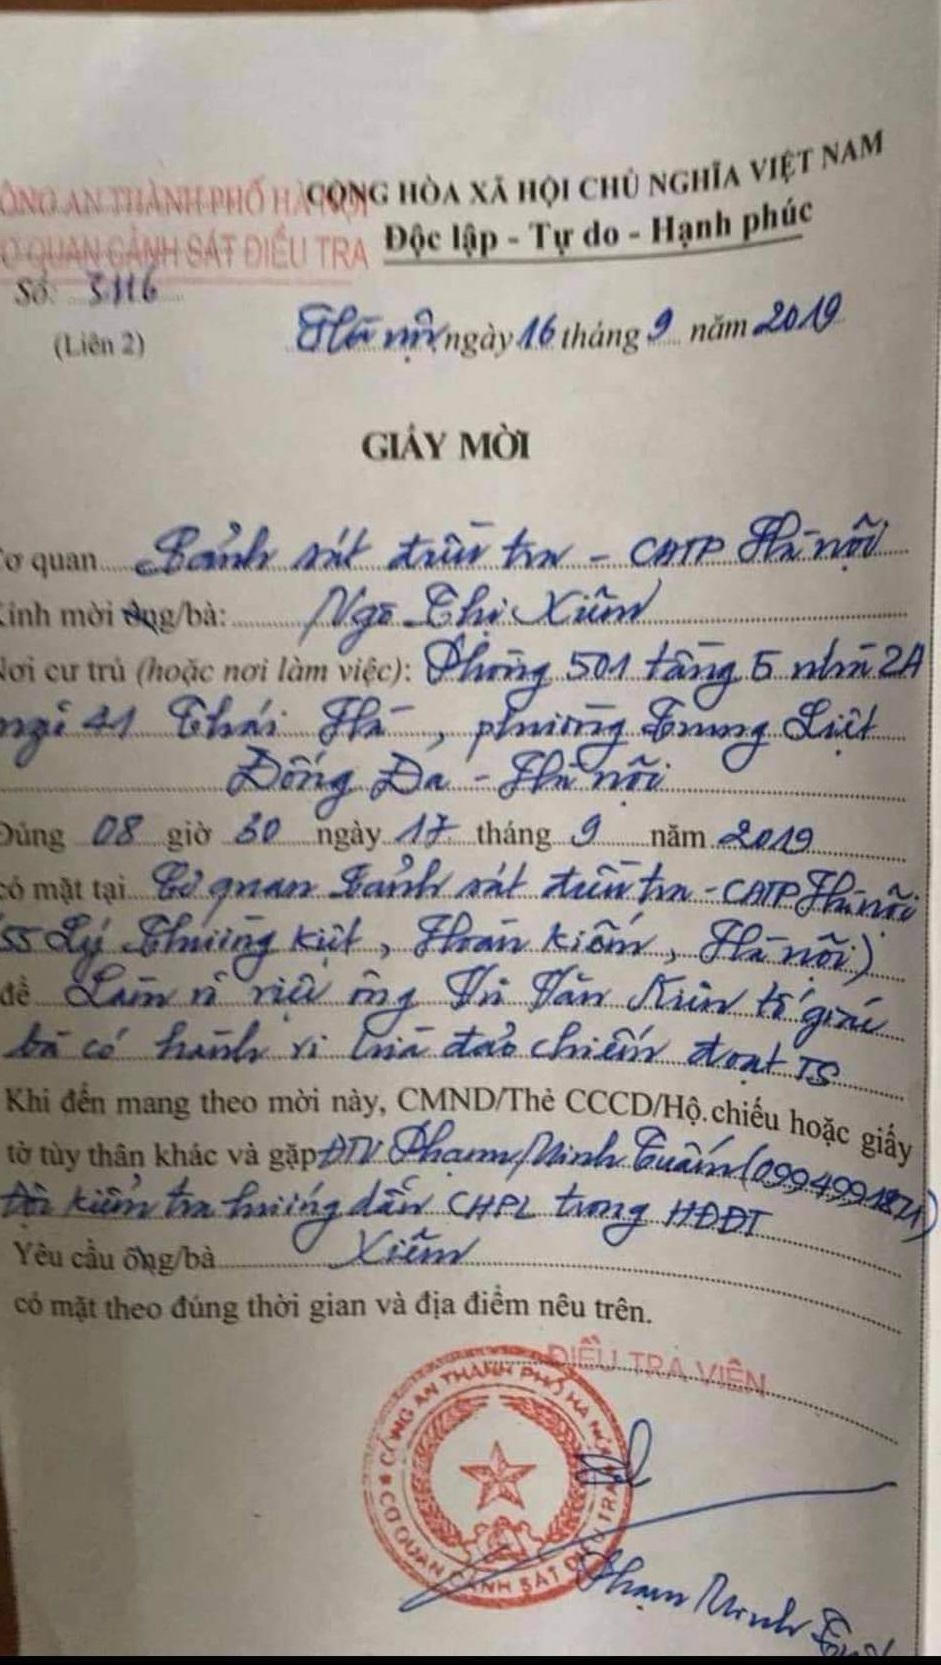 CỘNG HÒA XÃ HỘI CHỦ NGHĨA VIỆT NAM
ÔNG AN THÀNH PHỐ HÀ NỘI
Độc lập - Tự do - Hạnh phúc
Ơ QUAN CẢNH SÁT ĐIỀU TRA
Số: 3116
(Liên 2)
Hà nội, ngày 16 tháng 9 năm 2019
GIẤY MỜI
ơ quan Cảnh sát điều tra - CATP Hà nội
Kính mời ông/bà: Ngô Thị Xiêm
Nơi cư trú (hoặc nơi làm việc): Phòng 501 tầng 5 nhà 2A
ngõ 41 Thái Hà, phường Trung Liệt
Đống Đa - Hà nội
Đúng 08 giờ 30 ngày 17 tháng 9 năm 2019
có mặt tại Cơ quan Cảnh sát điều tra - CATP Hà nội
55 Lý Thường Kiệt, Hoàn Kiếm, Hà nội)
để Làm rõ việc ông Văn tố giác
bà có hành vi lừa đảo chiếm đoạt TS
Khi đến mang theo mời này, CMND/Thẻ CCCD/Hộ chiếu hoặc giấy
tờ tùy thân khác và gặp ĐTV Phạm Minh Tuấn (0994991871)
Đội kiểm tra hướng dẫn CHPL trong HĐĐT
Yêu cầu ông/bà Xiêm
có mặt theo đúng thời gian và địa điểm nêu trên.
ĐIỀU TRA VIÊN
CÔNG AN THÀNH PHỐ HÀ NỘI
CƠ QUAN CẢNH SÁT ĐIỀU TRA
Phạm Minh